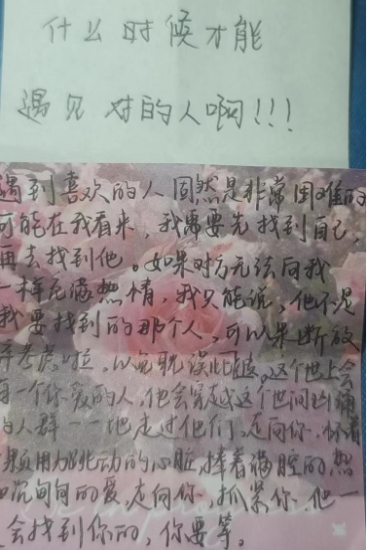 什么时候才能
遇见对的人啊!!!
遇到喜欢的人固然是非常困难的
可能在我看来,我需要先找到自己,
再去找到他。如果对方无法向我
一样充满热情,我只能说,他不是
我要找到的那个人,可以果断放
弃考虑啦,以免耽误彼此。这个世上会
有一个你爱的人,他会穿越这个世间汹涌
的人群一一地走过他们,走向你,怀着
一颗用力跳动的心脏,捧着满腔的热
和沉甸甸的爱,走向你,抓紧你。他一
会找到你的,你要等。